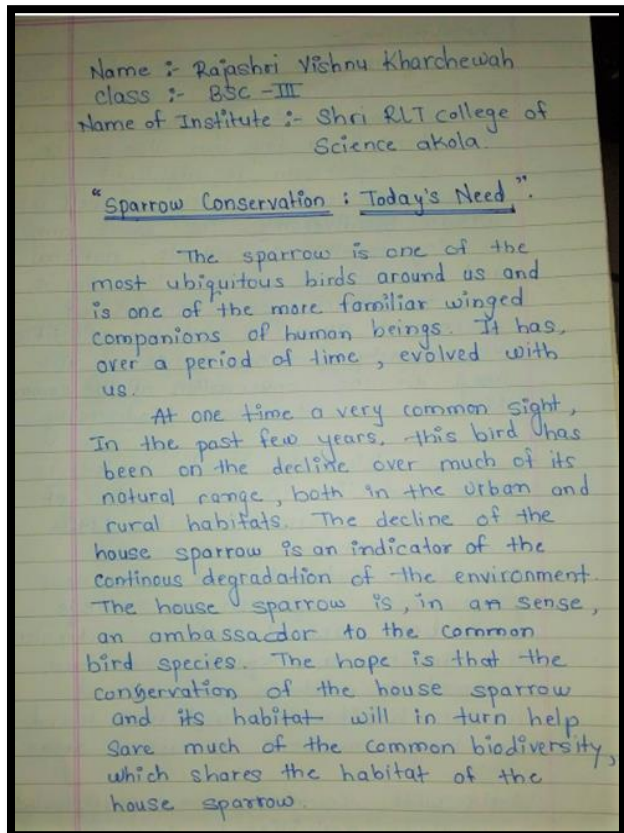 Name :- Rajashri Vishnu Kharchewah
class :- BSC -III
Name of Institute :- Shri RLT college of
Science akola.
"Sparrow Conservation : Today's Need".
The sparrow is one of the
most ubiquitous birds around us and
is one of the more familiar winged
companions of human beings. It has,
over a period of time, evolved with
us.
At one time a very common sight,
In the past few years, this bird has
been on the decline over much of its
natural range, both in the urban and
rural habitats. The decline of the
house sparrow is an indicator of the
continous degradation of the environment.
The house sparrow is, in an sense,
an ambassacdor to the common
bird species. The hope is that the
conservation of the house sparrow
and its habitat will in turn help
Save much of the common biodiversity,
which shares the habitat of the
house sparrow.